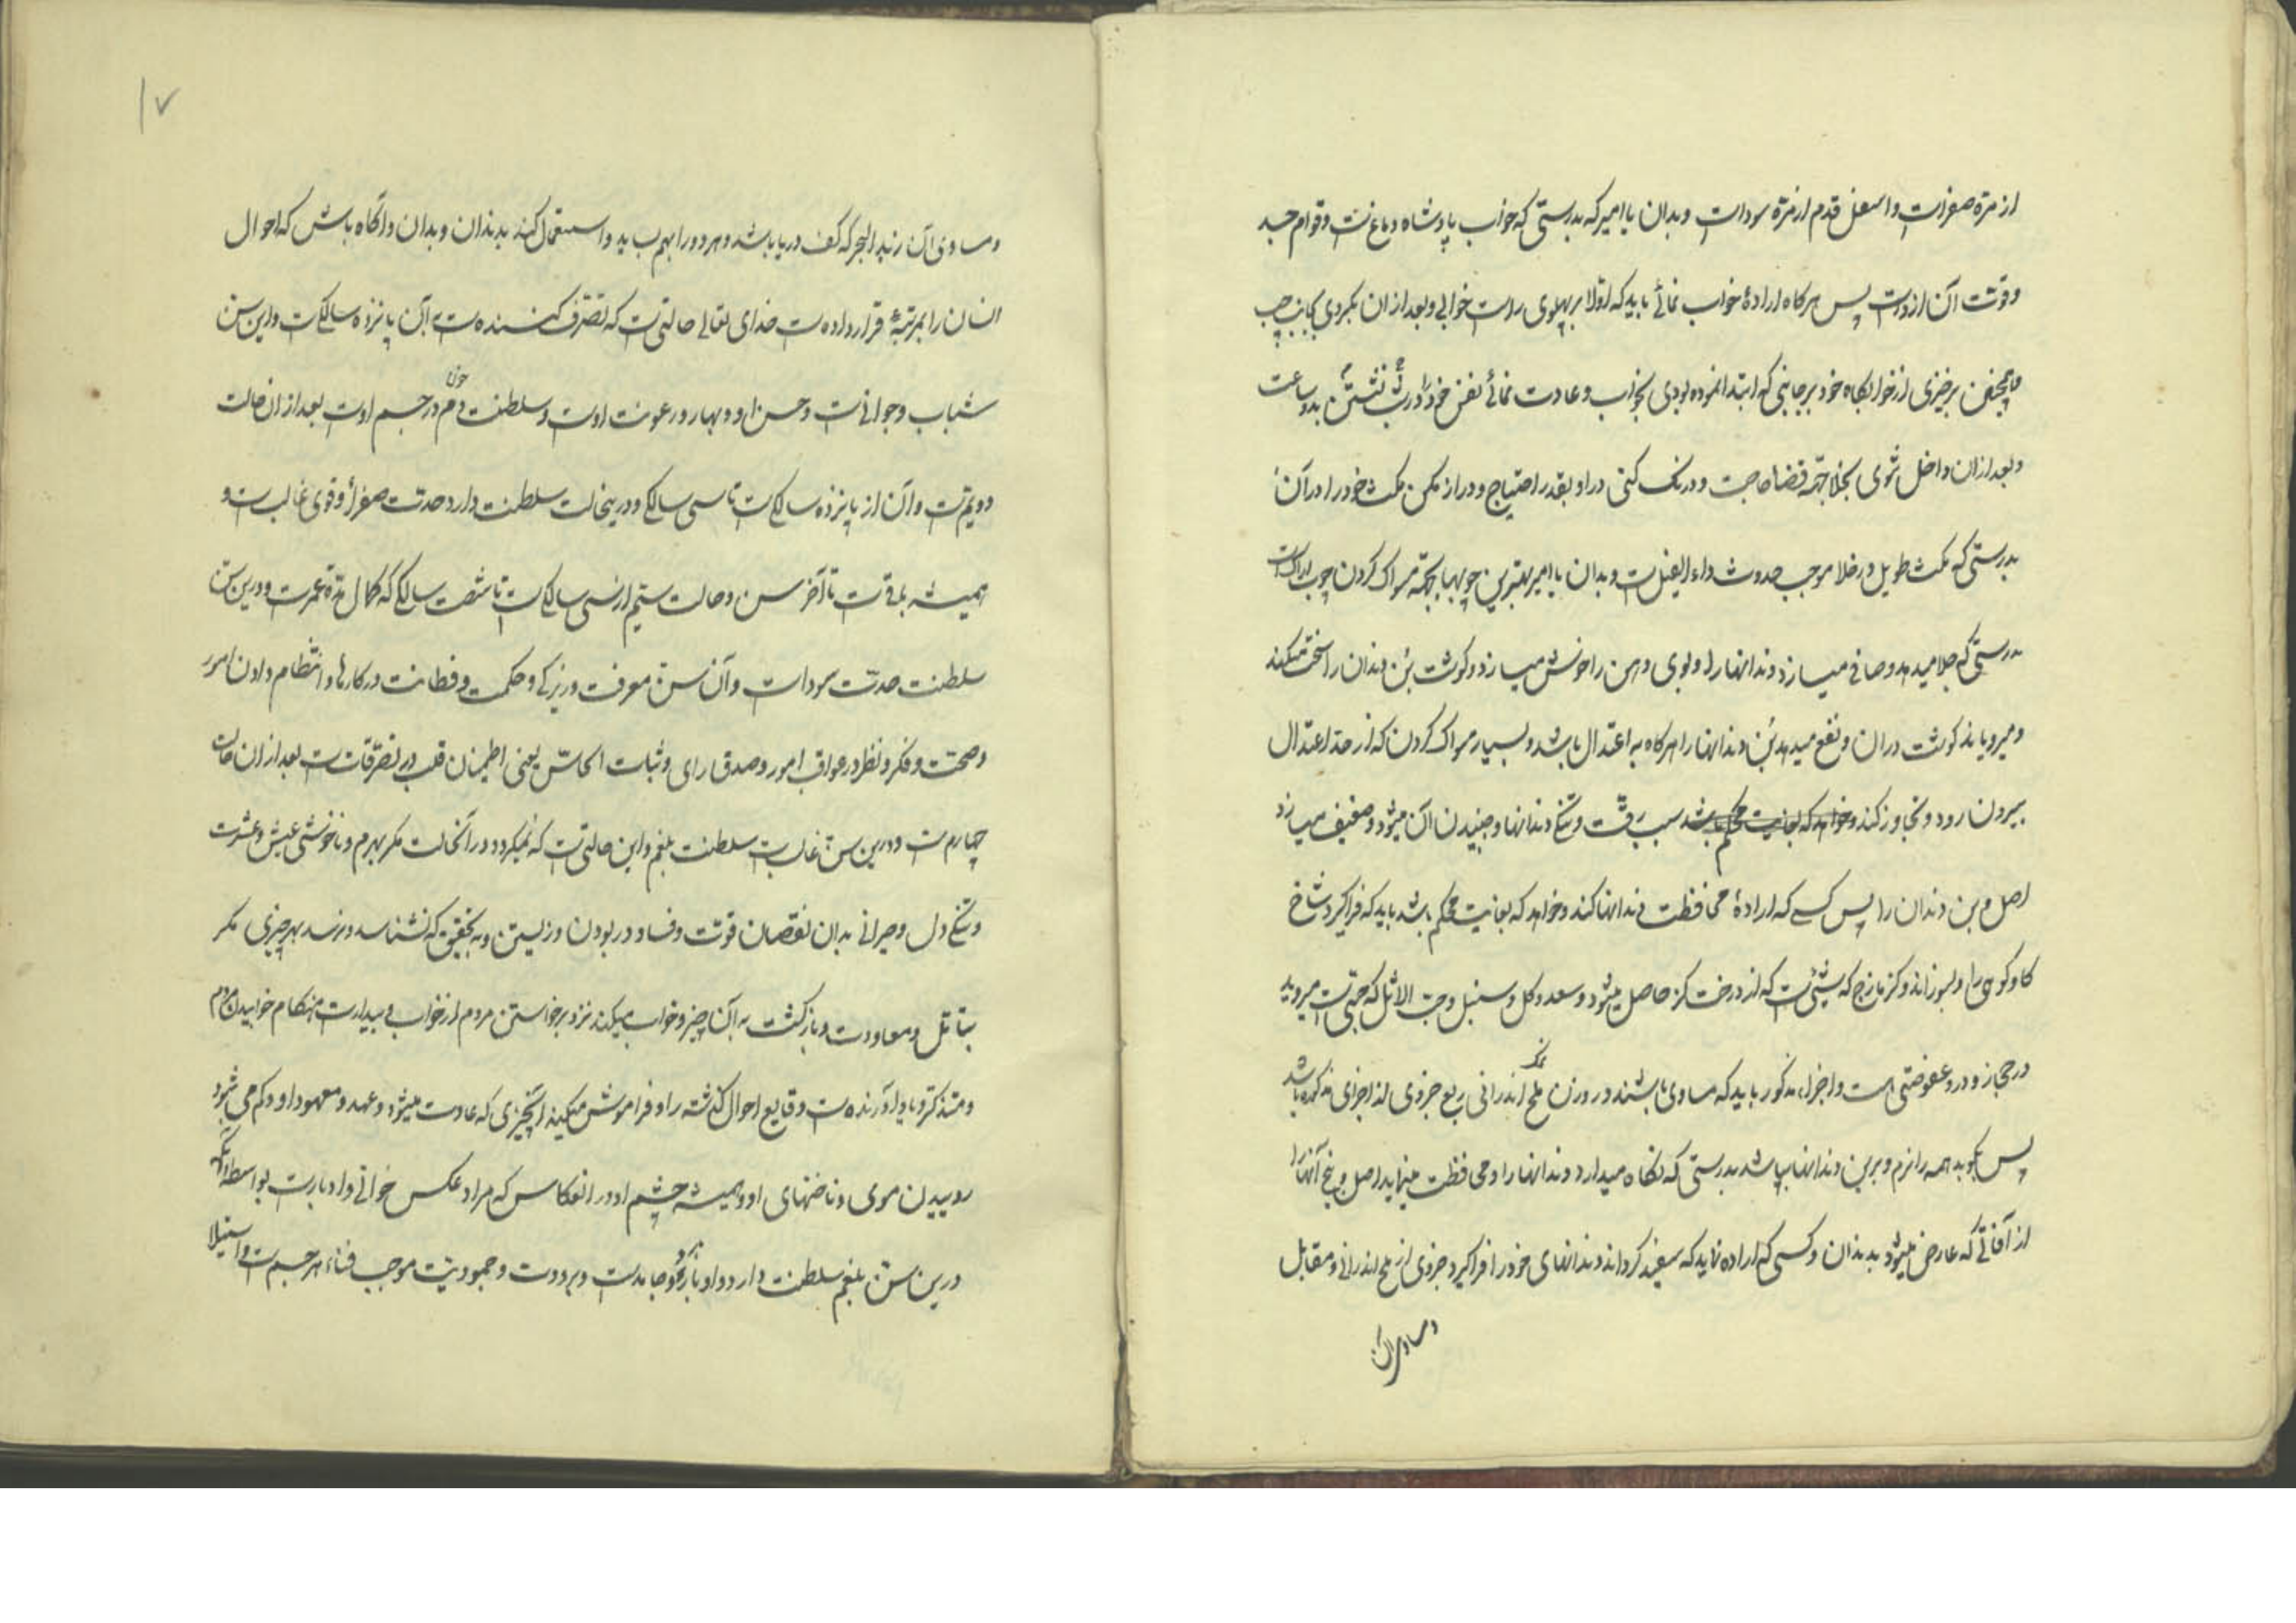 از مرة صفراست و اسفل قدم از مرة سوداست و بدان یا امیر که بدرستی که خواب پادشاه دماغ‌ست و قوام جسد
و قوت آن ازوست پس هرکاه ارادهٔ خواب نمائی باید که اولا بر پهلوی راست خوابی و بعد از ان بکردی بجانب چپ
و همچنین برخیزی از خوابکاه خود بر جانبی که ابتدا نموده بودی بخواب و عادت نمائی نفس خود را در شب نشستن بدو ساعت
و بعد از ان داخل شوی بخلا جهة قضا حاجت و درنک کنی در او بقدر احتیاج و دراز مکن مکث خود را در آن
بدرستی که مکث طویل در خلا موجب حدوث داء الفیل‌ست و بدان یا امیر بهترین چوبها بجهة مسواک کردن چوب اراک است
بدرستی که جلا میدهد و صافی میسازد دندانها را و بوی دهن را خوش میسازد و کوشت بن دندان را سخت میکند
و میرویاند کوشت در ان و نفع میدهد بن دندانها را هرکاه به اعتدال باشد و بسیار مسواک کردن که از حد اعتدال
بیرون رود و تجاوز کند و خواهد که بغایت محکم باشد سبب رقت و تنکی دندانها و جنبیدن آن میشود و ضعیف میسازد
اصل و بن دندان را پس کسی که ارادهٔ محافظت دندانها کند و خواهد که بغایت محکم باشد باید که فراکیرد شاخ
کاو کوهی را و بسوزاند و کزمازج که شیئی‌ست که از درخت کز حاصل میشود و سعد و کل و سنبل و حب الاثل که حبی‌ست میروید
در حجاز و درو عفوضتی است و اجزاء مذکور باید که مساوی باشند در وزن و نمک ملح اندرانی ربع جزوی از اجزای مذکوره باشد
پس بکوبد همه را نرم و بر بن دندانها بپاشد بدرستی که نکاه میدارد دندانها را و محافظت مینماید اصل و بیخ آنها را
از آفاتی که عارض میشود بدندان و کسی که اراده نماید که سفید کرداند دندانهای خود را فراکیرد جزوی از ملح اندرانی و مقابل
و مساوی آن
١٧
و مساوی آن زبد البحر که کف دریا باشد و هر دو را بهم بساید و استعمال کند بدندان و بدان و آکاه باش که احوال
انسان را بمرتبهٔ قرار داده‌ست خدای تعالی حالتی‌ست که تصرف کننده‌ست آن پانزده سالکی‌ست و این سن
شباب و جوانی‌ست و حسن او و بهار و رعونت اوست و سلطنت خون دم در جسم اوست بعد از ان حالت
دویم‌ست و آن از پانزده سالکی‌ست تا سی سالکی و درین حالت سلطنت دارد حدت صفرا و قوی غالب‌ست و
همیشه باقی‌ست تا آخر سن و حالت سیم از سی سالکی‌ست تا شصت سالکی که کمال مدة عمرست و درین سن
سلطنت حدت سوداست و آن سن معرفت و زیرکی و حکمت و فطانت در کارها و انتظام دادن امور
و صحت و فکر و نظر در عواقب امور و صدق رای و ثبات الجاش یعنی اطمینان قلب در تصرفات‌ست بعد از ان حالت
چهارم‌ست و درین سن غالب‌ست سلطنت بلغم و این حالتی‌ست که نمیکردد در آنحالت مکر بهرم و ناخوشی عیش و عشرت
و تنکی دل و حیرانی بدان نقصان قوت و فساد در بودن و زیستن و به تحقیق که نشناسد و نرسد بهر چیزی مکر
بتأمل و معاودت و بازکشت به آن چیز و خواب میکند نزد برخاستن مردم از خواب و بیدارست هنکام خوابیدن مردم
و متذکر و یاد آورنده‌ست وقایع احوال کذشته را و فراموش میکند آنچیزی که عادت میشود و عهد و معهود او و کم می‌شود
روییدن موی و ناخنهای او و همیشه جسم او در انعکاس که مراد عکس جوانی و ادبارست بواسطه آنکه
درین سن بلغم سلطنت دارد و او بارد و جامدست و برودت و جمودیت موجب فناء هر جسم‌ست و استیلا